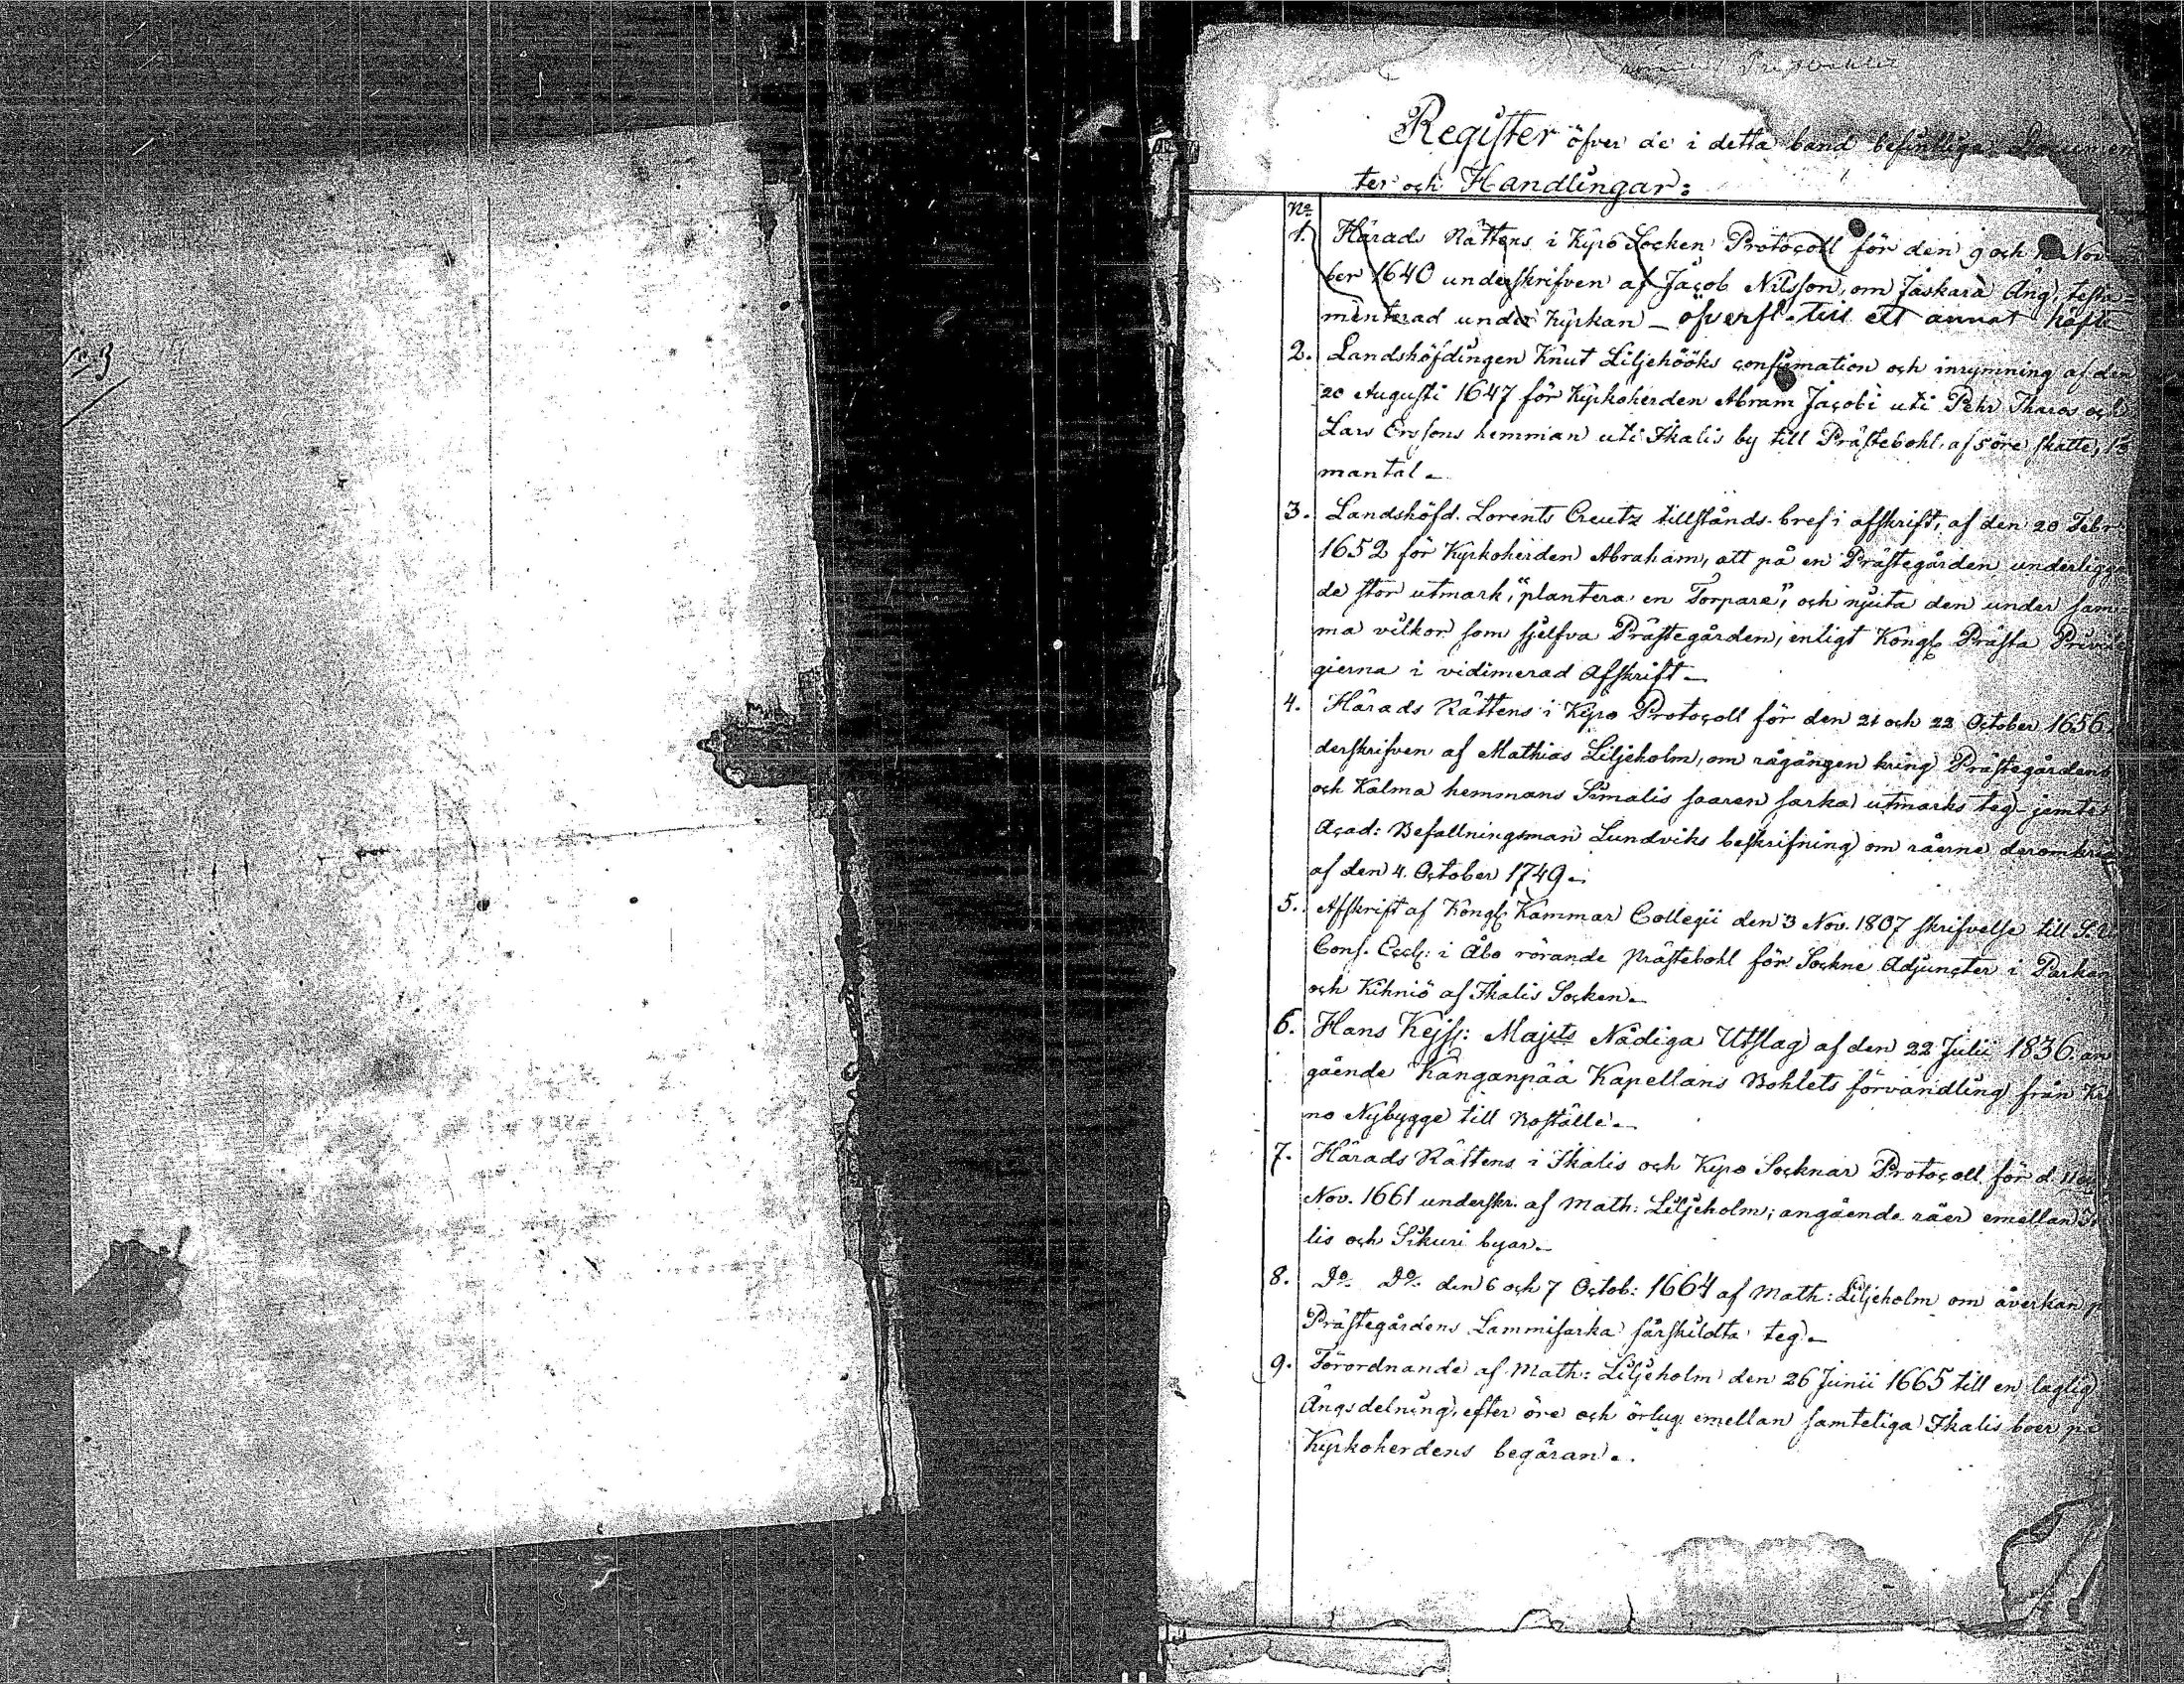 Register öfver de i detta band befintliga Documen
ter och Handlingar:
No
1. Härads Rättens i Kyro Socken Protocoll för den 9 och Nov
ber 1640 underskrifven af Jacob Nilsson, om Jaskara Äng, testa=
menterad under Kyrkan _ öfverfl. till ett annat häfte
2. Landshöfdingen Knut Liljehööks confirmation och inrymning af den
20 Augusti 1647 för Kyrkoherden Abram Jacobi uti Pehr Tharos och
Lars Erssons hemman uti Ikalis by till Prästebohl. af 5 öre skatte,
mantal _
3. Landshöfd. Lorents Creutz tillstånds-bref i afskrift, af den 20 Febr
1652 för Kyrkoherden Abraham, att på en Prästegården underliggan
de stor utmark, "plantera en Torpare", och njuta den under sam=
ma vilkor som sjelfva Prästegården, enligt Kongl. Prästa Privile
gierna i vidimerad Afskrift _
4. Härads Rättens i Kyro Protocoll för den 21 och 22 October 1656
derskrifven af Mathias Liljeholm, om rågången kring Prästegårdens
och Kalma hemmans Simalis saaren sarka utmarks teg jemte
Acad: Befallningsman Lundviks beskrifning om råerne deromkring
af den 4. October 1749 _
5. Afskrift af Kongl. Kammar Collegii den 3 Nov. 1807 skrifvelse till
Cons. Eccl: i Åbo rörande prästebohl för Sockne Adjuncter i Parkan
och Kihniö af Ikalis Socken _
6. Hans Kejs: Majts Nådiga Utslag af den 22 Julii 1836. an
gående Kanganpää Kapellans Bohlets förvandling från Kr
no Nybygge till Boställe _
7. Härads Rättens i Ikalis och Kyro Socknar Protocoll för d. 11
Nov. 1661 underskr. af Math: Liljeholm; angående råer emellan
lis och Sikuri byar _
8. Do Do den 6 och 7 Octob: 1664 af Math: Liljeholm om åverkan p
Prästegårdens Lammisarka särskildta teg _
9. Förordnande af Math: Liljeholm den 26 Junii 1665 till en laglig
Ängsdelning, efter öre och örtug emellan samteliga Ikalis boer på
Kyrkoherdens begäran _